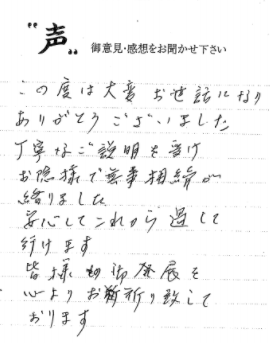 “声„ 御意見・感想をお聞かせ下さい
この度は大変お世話になり
ありがとうございました
丁寧なご説明を受け
お陰様で無事相続が
終りました
安心してこれから過して
行けます
皆様の御発展を
心よりお祈り致して
おります